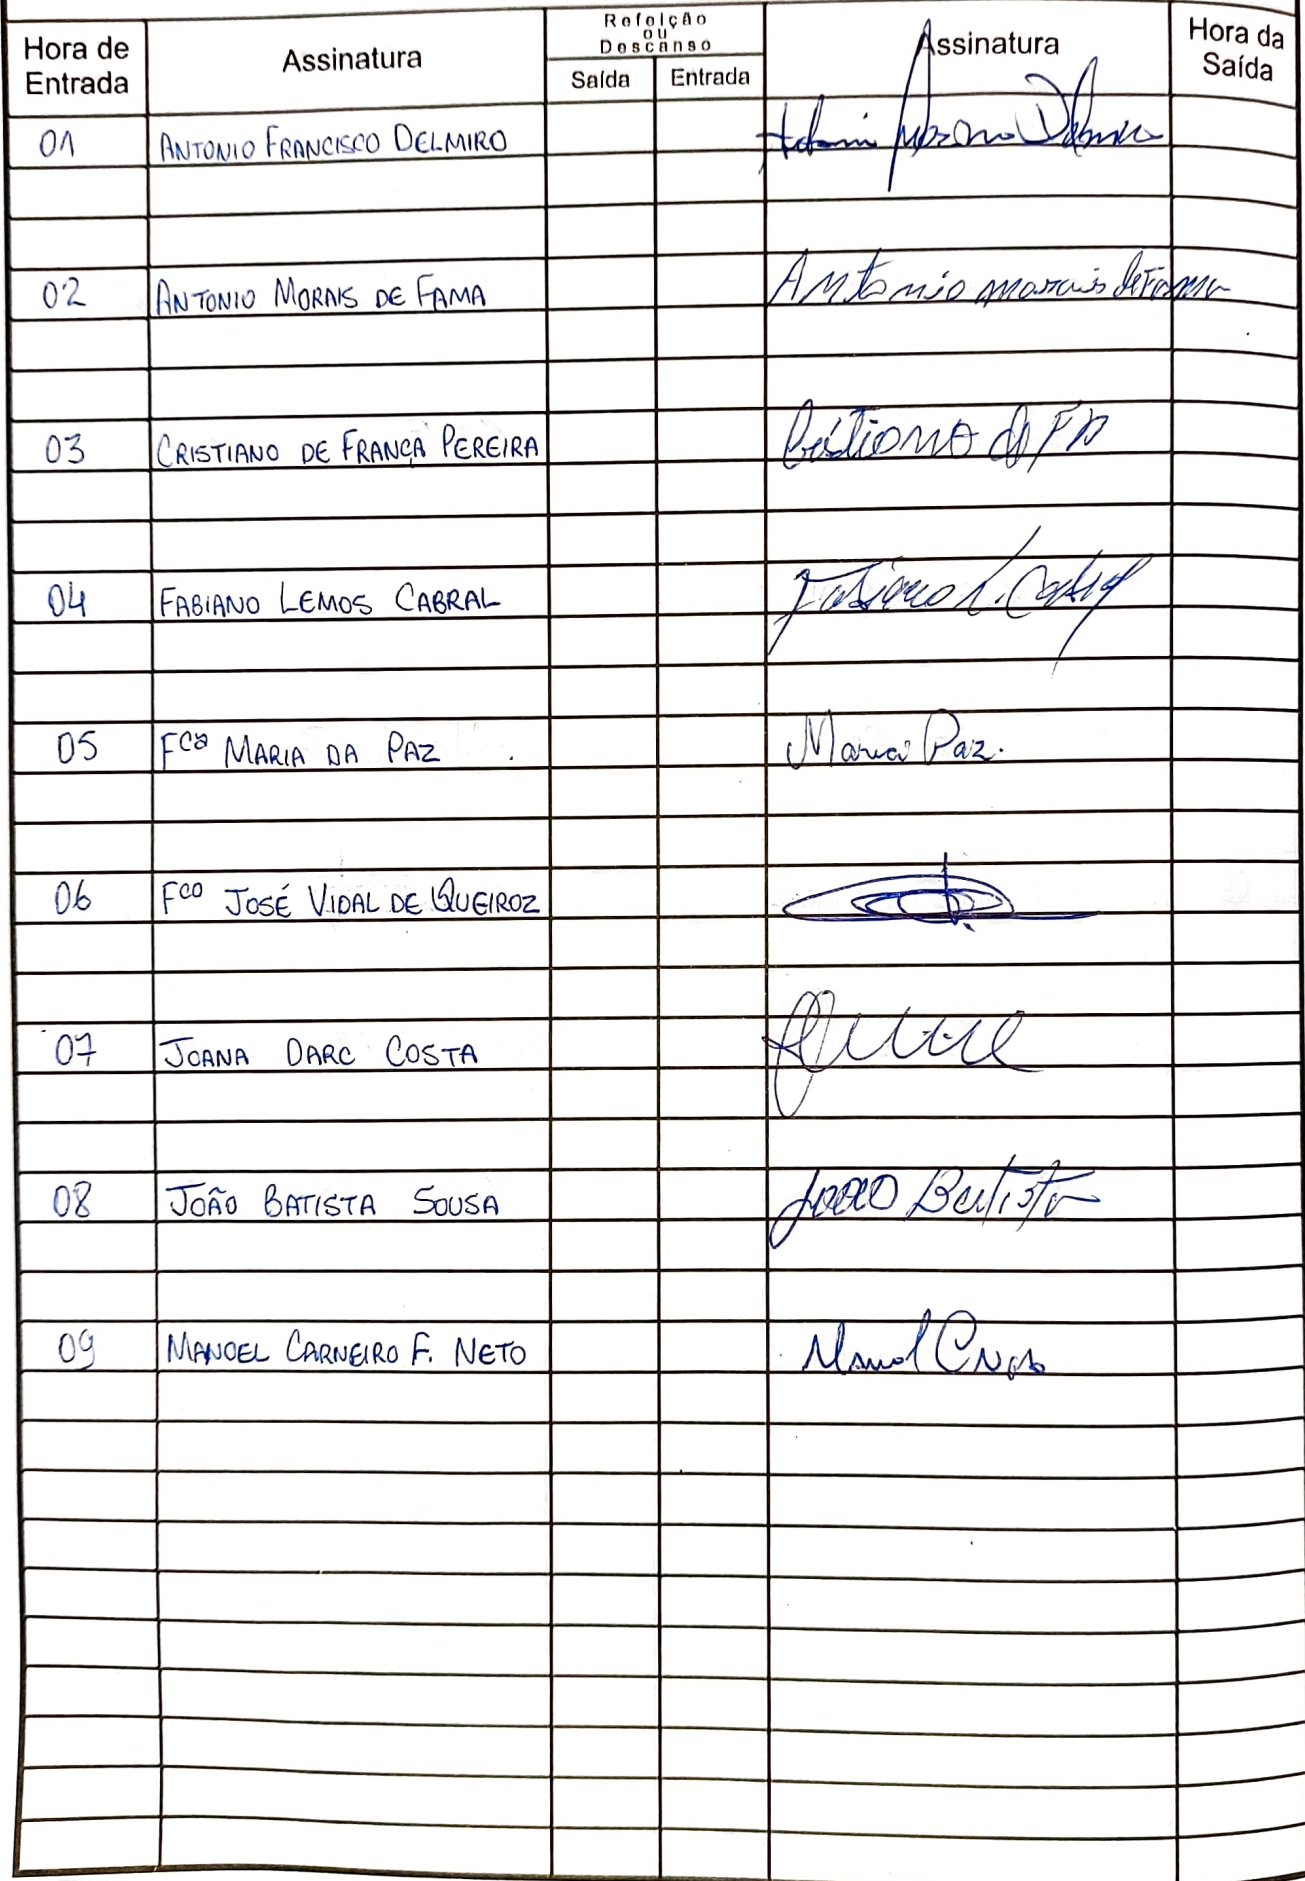 Hora de Entrada Assinatura Refeição ou Descanso Assinatura Hora da Saída
Saída Entrada
01 ANTONIO FRANCISCO DELMIRO
02 ANTONIO MORAIS DE FAMA Antonio morais de Fama
03 CRISTIANO DE FRANÇA PEREIRA
04 FABIANO LEMOS CABRAL Fabiano L. Cabral
05 Fcª MARIA DA PAZ Maria Paz.
06 Fco JOSÉ VIDAL DE QUEIROZ
07 JOANA DARC COSTA
08 JOÃO BATISTA SOUSA João Batista
09 MANOEL CARNEIRO F. NETO